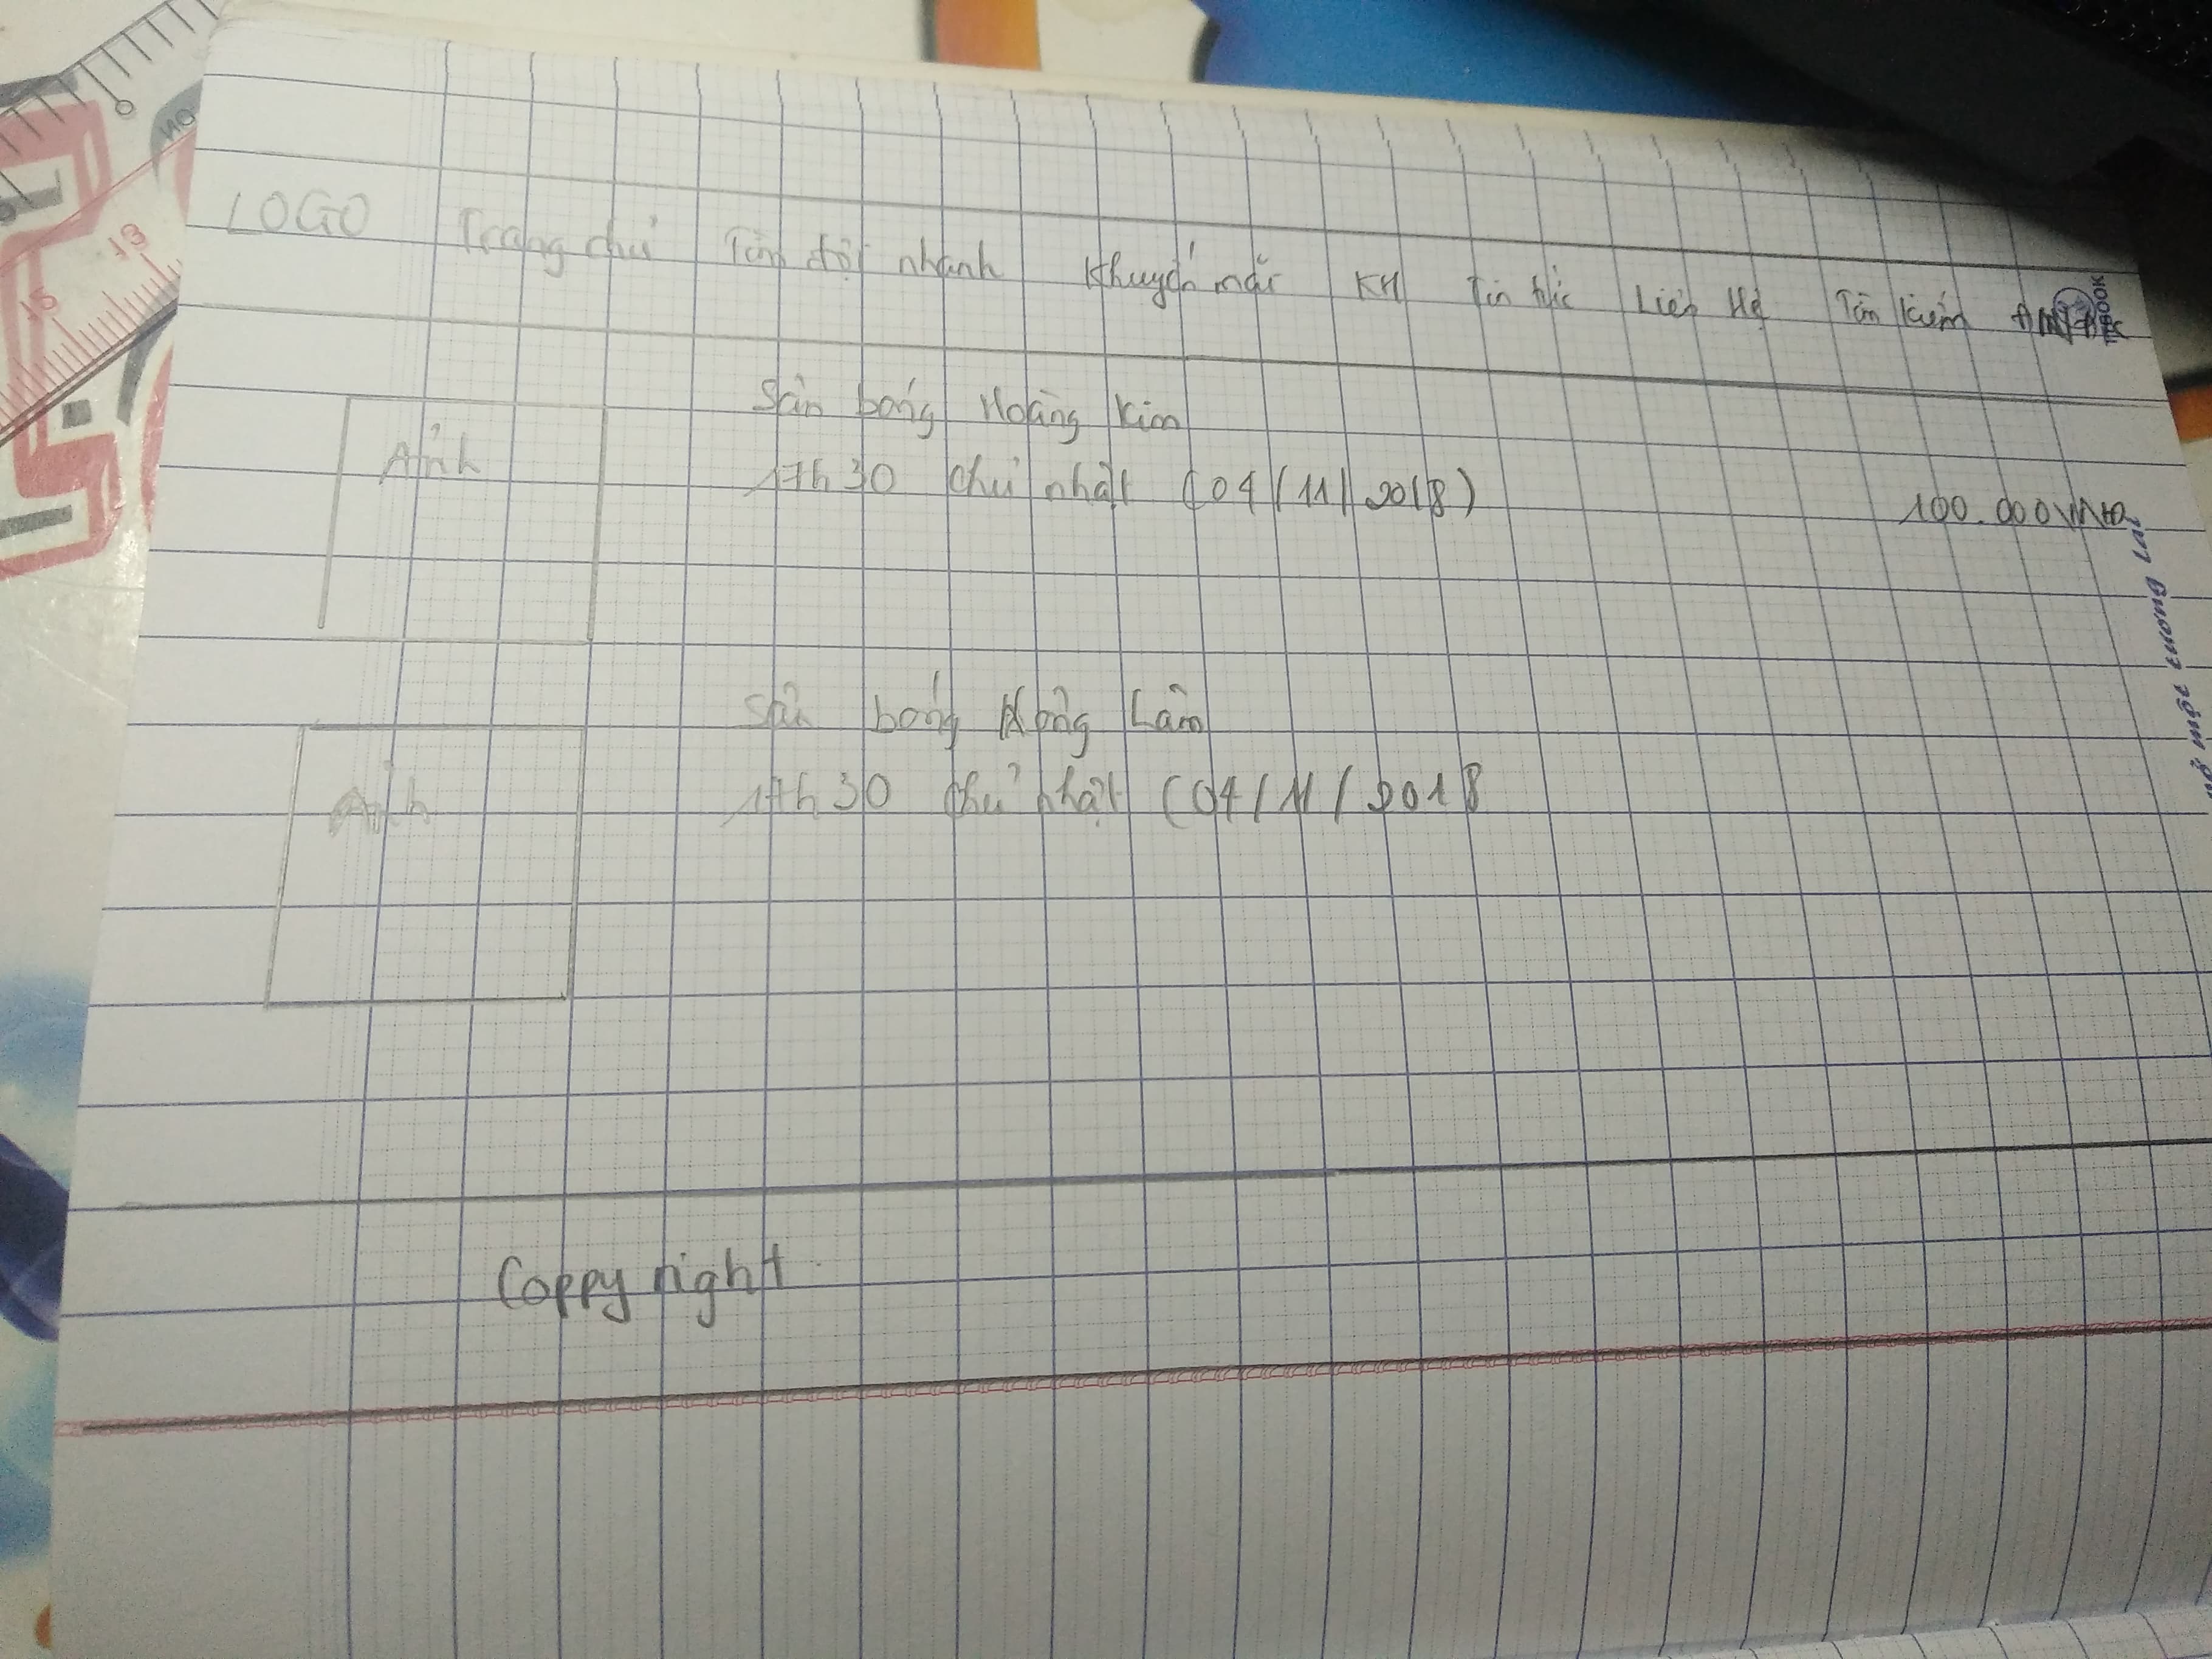 LOGO Trang chủ Tìm đội nhanh Khuyến mãi KH Tin tức Liên Hệ Tìm kiếm
Ảnh
Sân bóng Hoàng Kim
17h30 chủ nhật (04/11/2018)
100.000VNĐ
Ảnh
Sân bóng Hồng Lâm
17h30 chủ nhật (04/11/2018
Coppy right
một tương lai